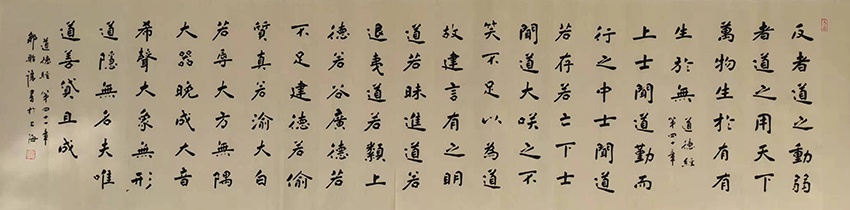 反者道之動弱
者道之用天下
萬物生於有有
生於無
道德經
第四十章
上士聞道勤而
行之中士聞道
若存若亡下士
聞道大咲之不
笑不足以為道
故建言有之明
道若昧進道若
退夷道若類上
德若谷廣德若
不足建德若偷
質真若渝大白
若辱大方無隅
大器晚成大音
希聲大象無形
道隱無名夫唯
道善貸且成
道德經第四十一章
書於上海